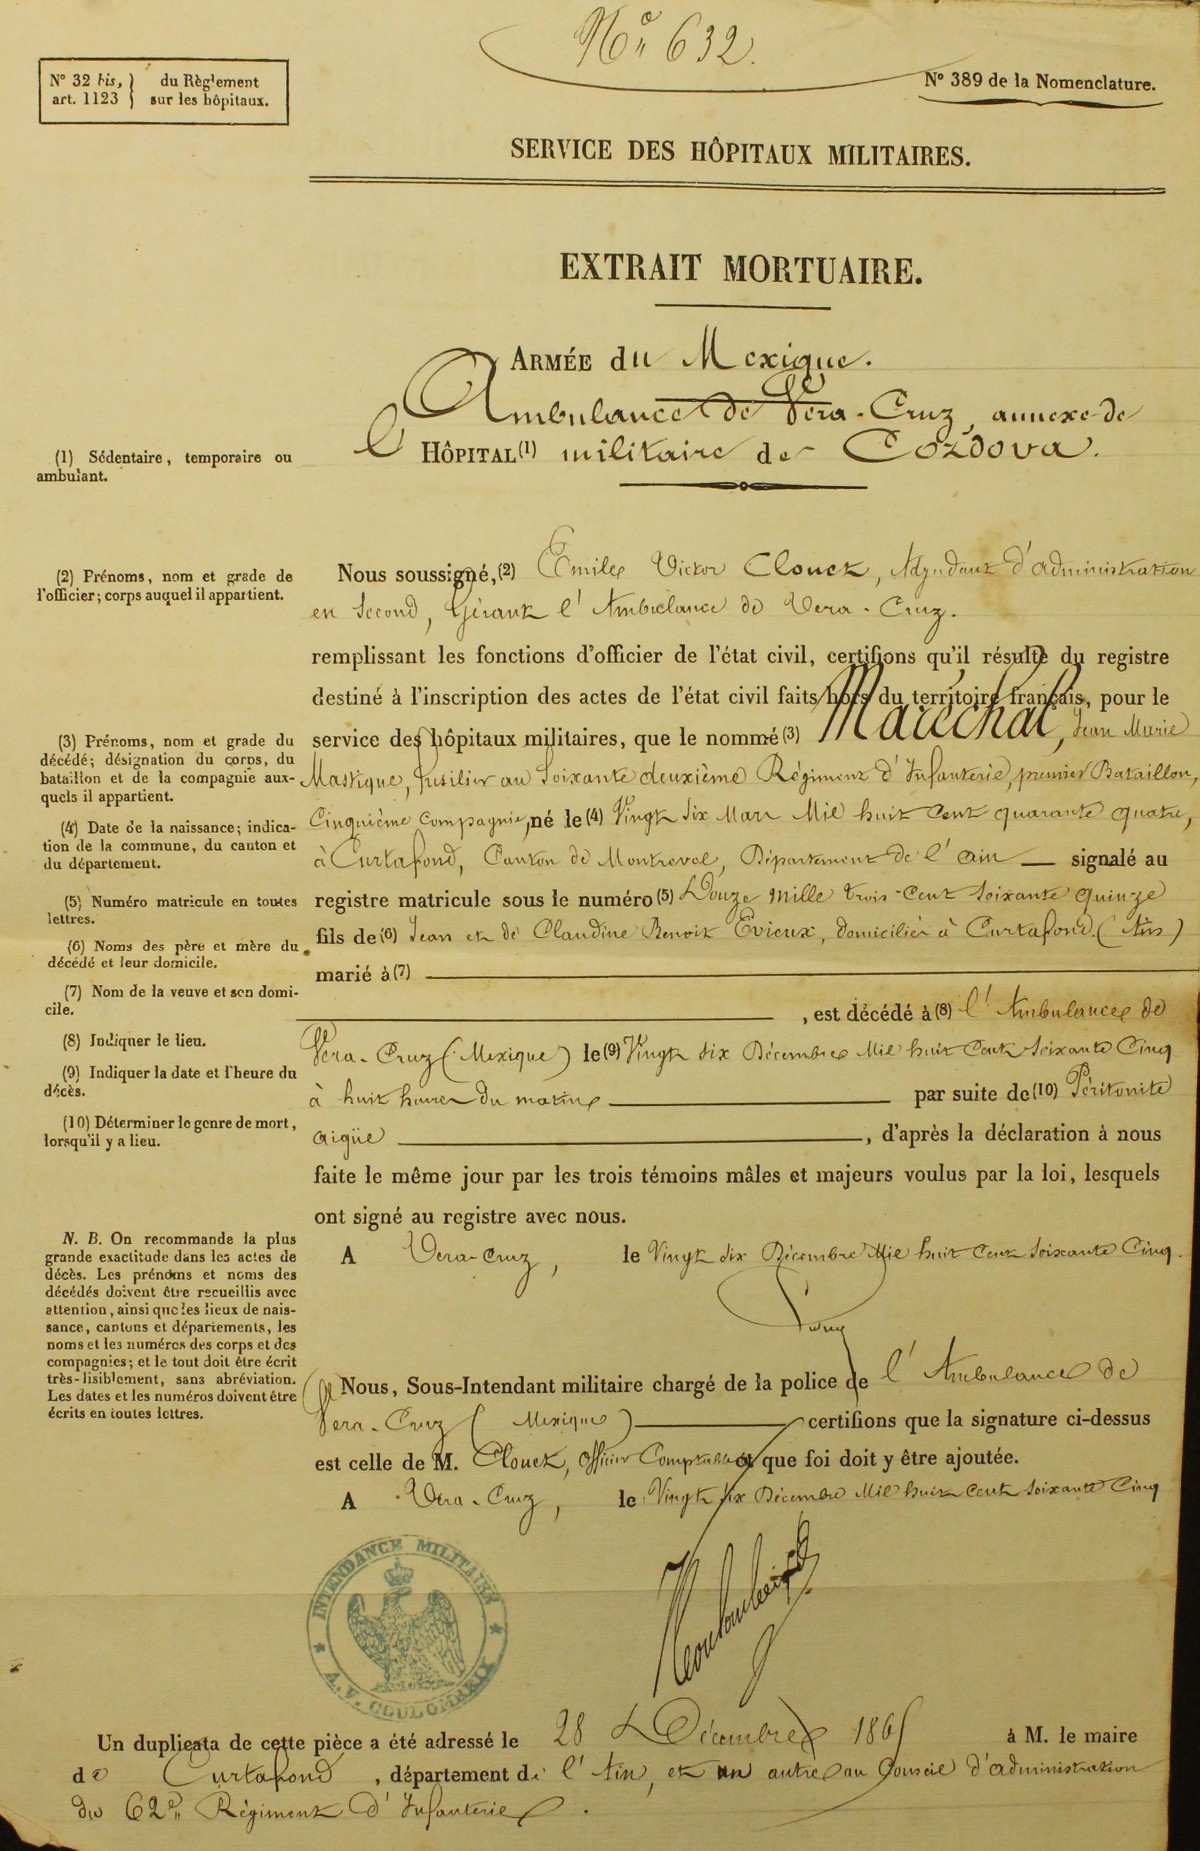 N° 632.
N° 32 bis, art. 1123 } du Règlement sur les hôpitaux.
N° 389 de la Nomenclature.
SERVICE DES HÔPITAUX MILITAIRES.
EXTRAIT MORTUAIRE.
ARMÉE du Mexique.
Ambulance de Vera-Cruz, annexe de
l' HÔPITAL (1) militaire de Cordova.
(1) Sédentaire, temporaire ou
ambulant.
(2) Prénoms, nom et grade de
l'officier; corps auquel il appartient.
Nous soussigné, (2) Emile Victor Clouet, Adjudant d'administration
en Second, Gérant l'Ambulance de Vera-Cruz.
remplissant les fonctions d'officier de l'état civil, certifions qu'il résulte du registre
destiné à l'inscription des actes de l'état civil faits hors du territoire français, pour le
service des hôpitaux militaires, que le nommé (3) Maréchal, Jean Marie
Mastique, fusilier au Soixante deuxième Régiment d'Infanterie, premier Bataillon,
Cinquième Compagnie, né le (4) Vingt Six Mars Mil huit Cent quarante quatre,
à Curtafond, Canton de Montrevel, Département de l'Ain — signalé au
registre matricule sous le numéro (5) Douze Mille trois-Cent Soixante quinze
fils de (6) Jean et de Claudine Benoit Evieux, domiciliés à Curtafond (Ain)
marié à (7)
, est décédé à (8) l'Ambulance de
Vera-Cruz (Mexique) le (9) Vingt Six Décembre Mil huit Cent Soixante Cinq
à huit heures du matin par suite de (10) Péritonite
aigüe, d'après la déclaration à nous
faite le même jour par les trois témoins mâles et majeurs voulus par la loi, lesquels
ont signé au registre avec nous.
(3) Prénoms, nom et grade du
décédé; désignation du corps, du
bataillon et de la compagnie aux-
quels il appartient.
(4) Date de la naissance; indica-
tion de la commune, du canton et
du département.
(5) Numéro matricule en toutes
lettres.
(6) Noms des père et mère du
décédé et leur domicile.
(7) Nom de la veuve et son domi-
cile.
(8) Indiquer le lieu.
(9) Indiquer la date et l'heure du
décès.
(10) Déterminer le genre de mort,
lorsqu'il y a lieu.
N. B. On recommande la plus
grande exactitude dans les actes de
décès. Les prénoms et noms des
décédés doivent être recueillis avec
attention, ainsi que les lieux de nais-
sance, cantons et départements, les
noms et les numéros des corps et des
compagnies; et le tout doit être écrit
très-lisiblement, sans abréviation.
Les dates et les numéros doivent être
écrits en toutes lettres.
A Vera-Cruz, le Vingt Six Décembre Mil huit Cent Soixante Cinq.
Nous, Sous-Intendant militaire chargé de la police de l'Ambulance de
Vera-Cruz (Mexique) certifions que la signature ci-dessus
est celle de M. Clouet, officier Comptable et que foi doit y être ajoutée.
A Vera-Cruz, le Vingt Six Décembre Mil huit Cent Soixante Cinq
INTENDANCE MILITAIRE
Un duplicata de cette pièce a été adressé le 28 Décembre 1865 à M. le maire
de Curtafond, département de l'Ain, et un autre au Conseil d'administration
du 62e Régiment d'Infanterie.